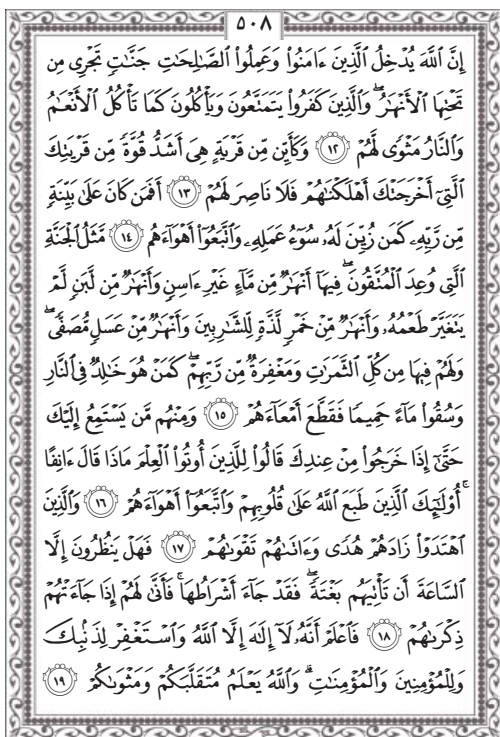 ٥٠٨
إِنَّ ٱللَّهَ يُدْخِلُ ٱلَّذِينَ ءَامَنُوا۟ وَعَمِلُوا۟ ٱلصَّٰلِحَٰتِ جَنَّٰتٍ تَجْرِى مِن
تَحْتِهَا ٱلْأَنْهَٰرُ ۖ وَٱلَّذِينَ كَفَرُوا۟ يَتَمَتَّعُونَ وَيَأْكُلُونَ كَمَا تَأْكُلُ ٱلْأَنْعَٰمُ
وَٱلنَّارُ مَثْوًى لَّهُمْ ١٢ وَكَأَيِّن مِّن قَرْيَةٍ هِىَ أَشَدُّ قُوَّةً مِّن قَرْيَتِكَ
ٱلَّتِىٓ أَخْرَجَتْكَ أَهْلَكْنَٰهُمْ فَلَا نَاصِرَ لَهُمْ ١٣ أَفَمَن كَانَ عَلَىٰ بَيِّنَةٍ
مِّن رَّبِّهِۦ كَمَن زُيِّنَ لَهُۥ سُوٓءُ عَمَلِهِۦ وَٱتَّبَعُوٓا۟ أَهْوَآءَهُم ١٤ مَّثَلُ ٱلْجَنَّةِ
ٱلَّتِى وُعِدَ ٱلْمُتَّقُونَ ۖ فِيهَآ أَنْهَٰرٌ مِّن مَّآءٍ غَيْرِ ءَاسِنٍ وَأَنْهَٰرٌ مِّن لَّبَنٍ لَّمْ
يَتَغَيَّرْ طَعْمُهُۥ وَأَنْهَٰرٌ مِّنْ خَمْرٍ لَّذَّةٍ لِّلشَّٰرِبِينَ وَأَنْهَٰرٌ مِّنْ عَسَلٍ مُّصَفًّى ۖ
وَلَهُمْ فِيهَا مِن كُلِّ ٱلثَّمَرَٰتِ وَمَغْفِرَةٌ مِّن رَّبِّهِمْ ۖ كَمَنْ هُوَ خَٰلِدٌ فِى ٱلنَّارِ
وَسُقُوا۟ مَآءً حَمِيمًا فَقَطَّعَ أَمْعَآءَهُمْ ١٥ وَمِنْهُم مَّن يَسْتَمِعُ إِلَيْكَ
حَتَّىٰٓ إِذَا خَرَجُوا۟ مِنْ عِندِكَ قَالُوا۟ لِلَّذِينَ أُوتُوا۟ ٱلْعِلْمَ مَاذَا قَالَ ءَانِفًا ۚ
أُو۟لَٰٓئِكَ ٱلَّذِينَ طَبَعَ ٱللَّهُ عَلَىٰ قُلُوبِهِمْ وَٱتَّبَعُوٓا۟ أَهْوَآءَهُمْ ١٦ وَٱلَّذِينَ
ٱهْتَدَوْا۟ زَادَهُمْ هُدًى وَءَاتَىٰهُمْ تَقْوَىٰهُمْ ١٧ فَهَلْ يَنظُرُونَ إِلَّا
ٱلسَّاعَةَ أَن تَأْتِيَهُم بَغْتَةً ۖ فَقَدْ جَآءَ أَشْرَاطُهَا ۚ فَأَنَّىٰ لَهُمْ إِذَا جَآءَتْهُمْ
ذِكْرَىٰهُمْ ١٨ فَٱعْلَمْ أَنَّهُۥ لَآ إِلَٰهَ إِلَّا ٱللَّهُ وَٱسْتَغْفِرْ لِذَنۢبِكَ
وَلِلْمُؤْمِنِينَ وَٱلْمُؤْمِنَٰتِ ۗ وَٱللَّهُ يَعْلَمُ مُتَقَلَّبَكُمْ وَمَثْوَىٰكُمْ ١٩